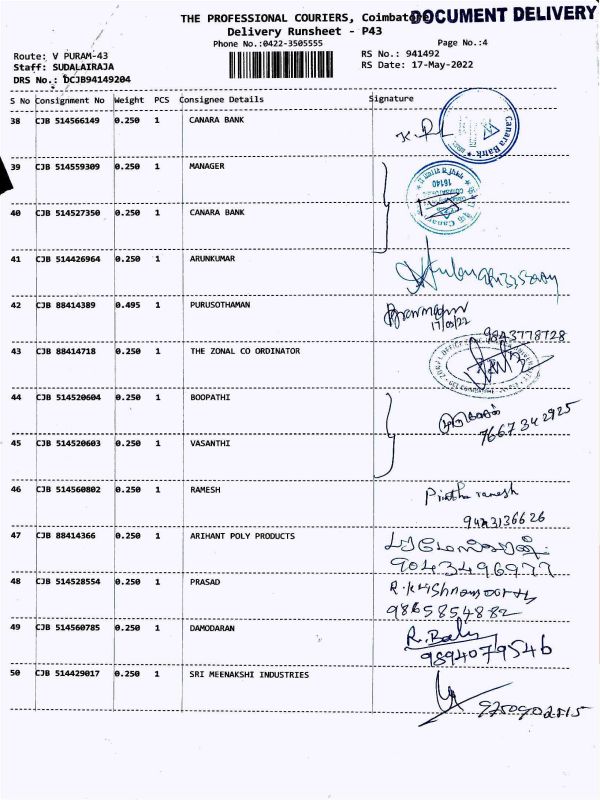 THE PROFESSIONAL COURIERS, Coimbatore
DOCUMENT DELIVERY
Delivery Runsheet - P43
Phone No.:0422-3505555
Page No.:4
Route: V PURAM-43
RS No.: 941492
Staff: SUDALAIRAJA
RS Date: 17-May-2022
DRS No.: DCJB94149204
S No Consignment No Weight PCS Consignee Details Signature
38 CJB 514566149 0.250 1 CANARA BANK
Canara Bank
39 CJB 514559309 0.250 1 MANAGER
16140
40 CJB 514527350 0.250 1 CANARA BANK
41 CJB 514426964 0.250 1 ARUNKUMAR
42 CJB 88414389 0.495 1 PURUSOTHAMAN
17/05/22
9843778728
43 CJB 88414718 0.250 1 THE ZONAL CO ORDINATOR
44 CJB 514520604 0.250 1 BOOPATHI
7667342925
45 CJB 514520603 0.250 1 VASANTHI
46 CJB 514560802 0.250 1 RAMESH
ramesh
9443136626
47 CJB 88414366 0.250 1 ARIHANT POLY PRODUCTS
9043496977
48 CJB 514528554 0.250 1 PRASAD
R.Krishnamoorthy
9865854882
49 CJB 514560785 0.250 1 DAMODARAN
R. Balu
9894079546
50 CJB 514429017 0.250 1 SRI MEENAKSHI INDUSTRIES